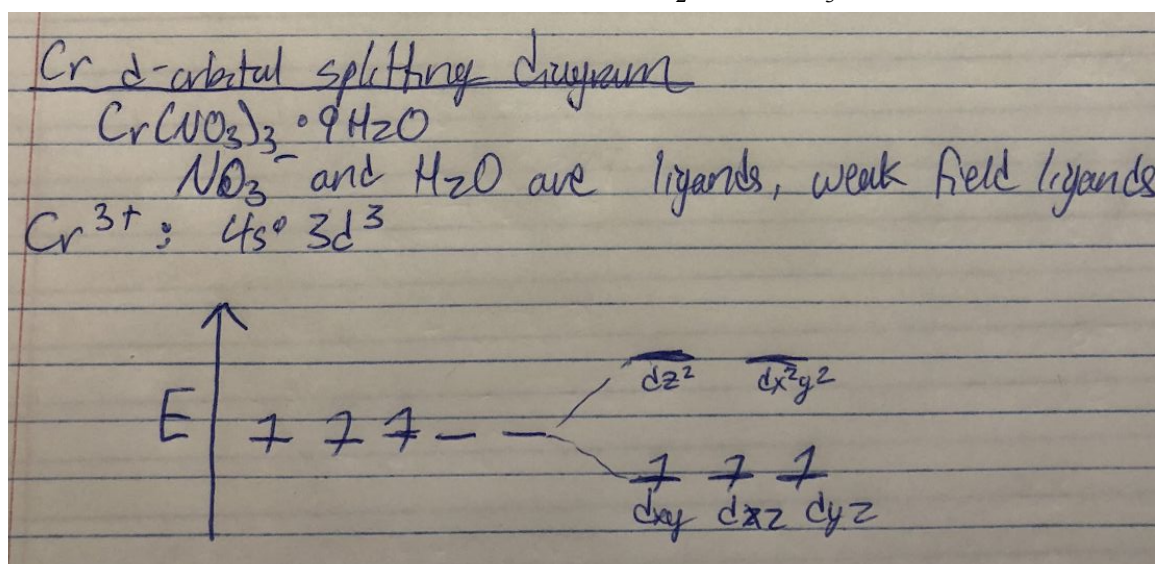 2 3
Cr d-orbital splitting diagram
Cr(NO3)3 • 9H2O
NO3⁻ and H2O are ligands, weak field ligands
Cr³⁺: 4s⁰ 3d³
E
dz² dx²y²
dxy dxz dyz